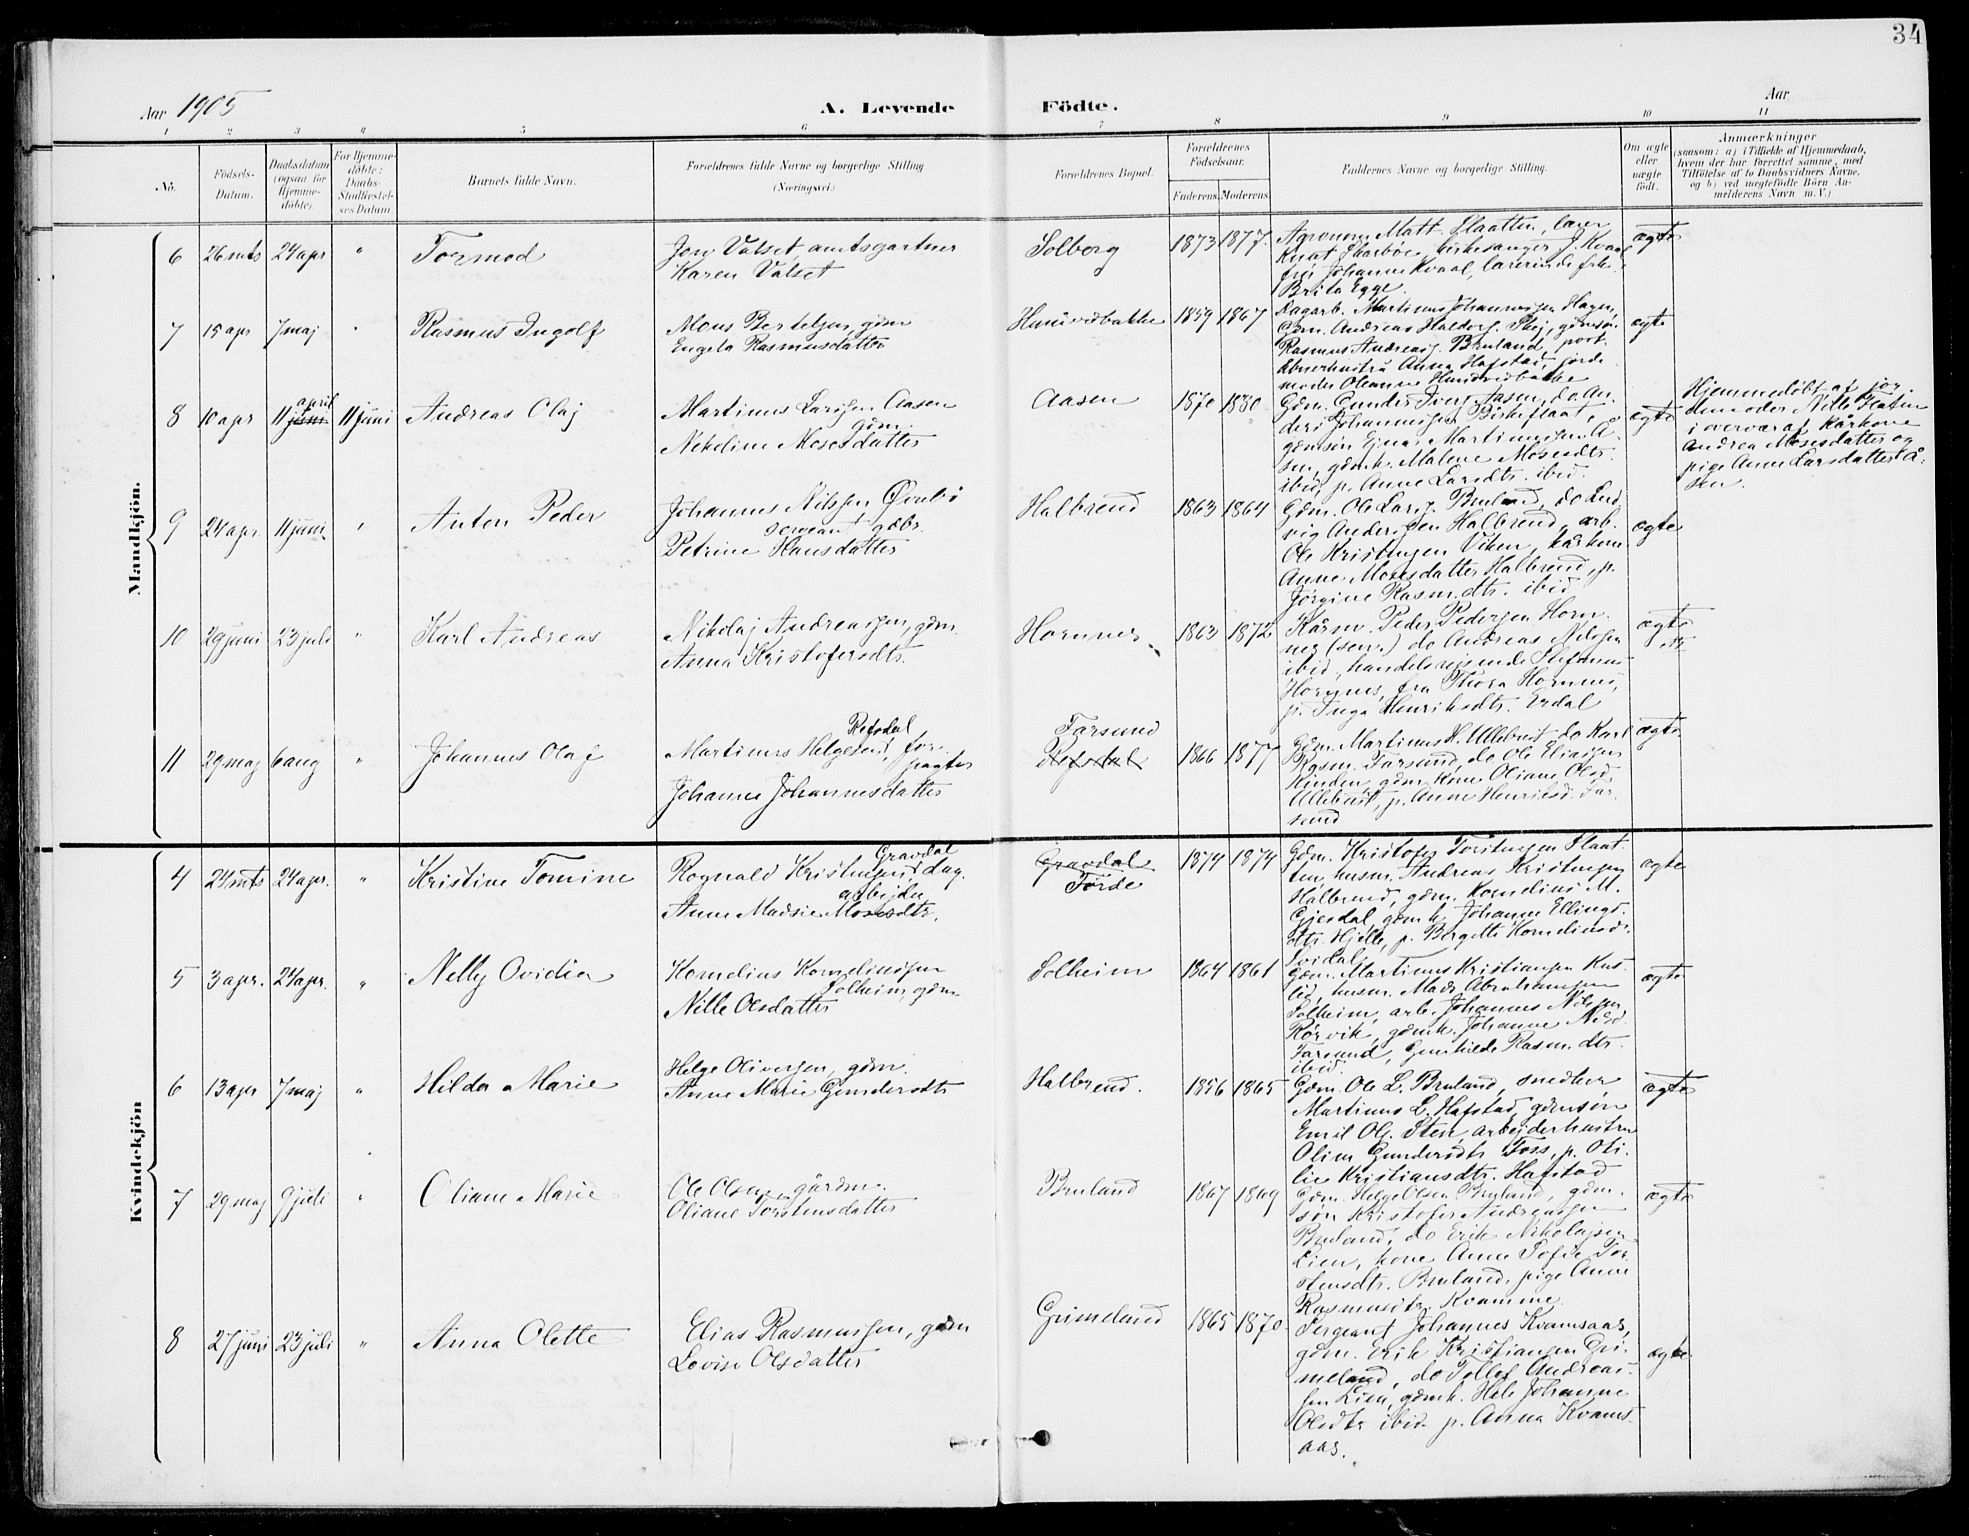 34
Aar 1905
A. Levende Födte.
Aar
1 2 3 4 5 6 7 8 9 10 11
No.
Födsels-Datum.
Daabsdatum (ogsaa for Hjemme-döbte).
For Hjemme-döbte: Daabs-Stadfæstel-ses Datum.
Barnets fulde Navn.
Forældrenes fulde Navne og borgerlige Stilling (Næringsvei.)
Forældrenes Bopæl.
Forældrenes Födselsaar.
Faderens. Moderens.
Faddernes Navne og borgerlige Stilling.
Om ægte eller uægte födt.
Anmærkninger
(saasom: a) i Tilfælde af Hjemmedaab, hvem der har forrettet samme, med Tilföielse af to Daabsvidners Navne, og b) ved uægtefödte Börn Anmelderens Navn m. V.)
Mandkjön.
6 26 mts 24 apr " Tormod
Jon Valset, amtsgartner
Karen Valset
Solberg 1873 1877
Agronom Matt. Flaatten, lærer
Knut Skarbö, kirkesanger J. Kvaal
frú Johanne Kvaal, lærerinde frk.
Brita Egge.
ægte
7 15 apr 7 maj " Rasmus Ingolf
Mons Bertelsen, gdm
Engela Rasmusdatter
Hundvidbakke 1859 1867
Dagarb. Martinus Johannesjen Hagen,
Gdm. Andreas Haldorj. , gdmsön
Rasmus Andreasj. Bruland, post-
Anna Hafstad, jorde
moder Oleanne Hundvidbakke
ægte
8 10 apr 11 april juni 11 juni Andreas Olaj
Martinus Larsjen Aasen
gdm.
Nikoline Mosesdatter
Aasen 1870 1880
Gdm. Gunder Iverj. Aasen, do An-
ders Johannesjen Birkeflaat,
gdmsön Ejnar Martinusjen Å-
sen, gdmk. Malene Mosesdt.
ibid, p. Anne Larsdt. ibid.
ægte
Hjemmedöbt af jor-
demoder Nille Flaten
i overvær af kårkone
Andrea Mosesdatter og
pige Anne Larsdatter Å-
sen.
9 24 apr. 11 juni " Anton Peder
Johannes Nilssen Övrebö
sergeant gdbr.
Petrine Hansdatter
Halbrend 1863 1864
Gdm. Ole Larsj. Bruland, do Lud
vig Andersjen Halbrend, arb.
Ole Kristensjen Viken, kårkone
Anne Mosesdatter Halbrend, p.
Jörgine Rasm.dtr. ibid
ægte
10 29 juni 23 juli " Karl Andreas
Nikolaj Andreasjen, gdm.
Anna Kristofersdtr.
Hornnes 1863 1872
Kårm. Peder Pedersjen Horn-
nes (sen.) do Andreas Nilssen
ibid, handelsrejsende Stefanus
Hornnes, frú Thora Hornnes,
p. Inga Henriksdtr. Erdal
ægte
11 29 maj 6 aug " Johannes Olaf
Refsdal
Martinus Helgesen, for-
pagter
Johanne Johannesdatter
Farsund
Refsdal 1866 1877
Gdm. Martinus H. Ullebust, do Karl
Rasm. Farsund, do Ole Eliasjen
Kinden, gdm. kone Oliane Olsd.
Ullebust, p. Anne Henriksd. Far-
sund
ægte
Kvindekjön
4 24 mts 24 apr. " Kristine Tomine
Gravdal
Rognald Kristensjen dag-
arbejder
Anne Madsie Mosesdtr.
Gravdal
Förde 1874 1874
Gdm. Kristofer Torstensjen Flaat-
ten, husm. Andreas Kristensjen
Halbrend, gdm. Kornelius M.
Gjesdal, gdmk. Johanne Ellings-
dtr. Hjelle, p. Bergette Korneliusd.
Svidal
ægte
5 3 apr. 24 apr. " Nelly Ovidia
Kornelius Korneliusjen
Solheim, gdm.
Nille Olsdatter
Solheim 1864 1861
Gdm. Martinus Kristiansjen Kus-
lid, husm. Mads Abrahamsjen
Solheim, arb. Johannes Nilssen
Rörvik, gdmk. Johanne Nilsd.
Farsund, Gunhilde Rasm.dtr.
ibid.
ægte
6 13 apr 7 maj " Hilda Marie
Helge Oliversjen, gdm.
Anne Marie Gundersdtr
Halbrend. 1856 1865
Gdm. Ole L. Bruland, snedker
Martinus L. Hafstad, gdmsön
Emil Olj. Sten, arbejderhustru
Olina Gundersdtr Foss, p. Oti-
lie Kristiansdtr. Hafstad
ægte
7 29 maj 9 juli " Oliane Marie
Ole Olsen, gårdm.
Oliane Torstensdatter
Bruland 1867 1869
Gdm. Helge Olsen Bruland, gdm.
sön Kristofer Andreasjen
Bruland, do Erik Nikolajsen
Lien, kone Anne Sofie Tor-
stensdtr. Bruland, pige Anne
Rasmusdtr. Kvamme.
ægte
8 27 juni 23 juli " Anna Olette
Elias Rasmussen, gdm
Lovise Olsdatter
Grimeland 1865 1870
Sergeant Johannes Kvamsaas,
gdm. Erik Kristiansjen Gri-
meland, do Tollef Andreas-
sen Lien, gdmk. Johanne
Olsdtr ibid. p. Anna Kvams-
aas.
ægte